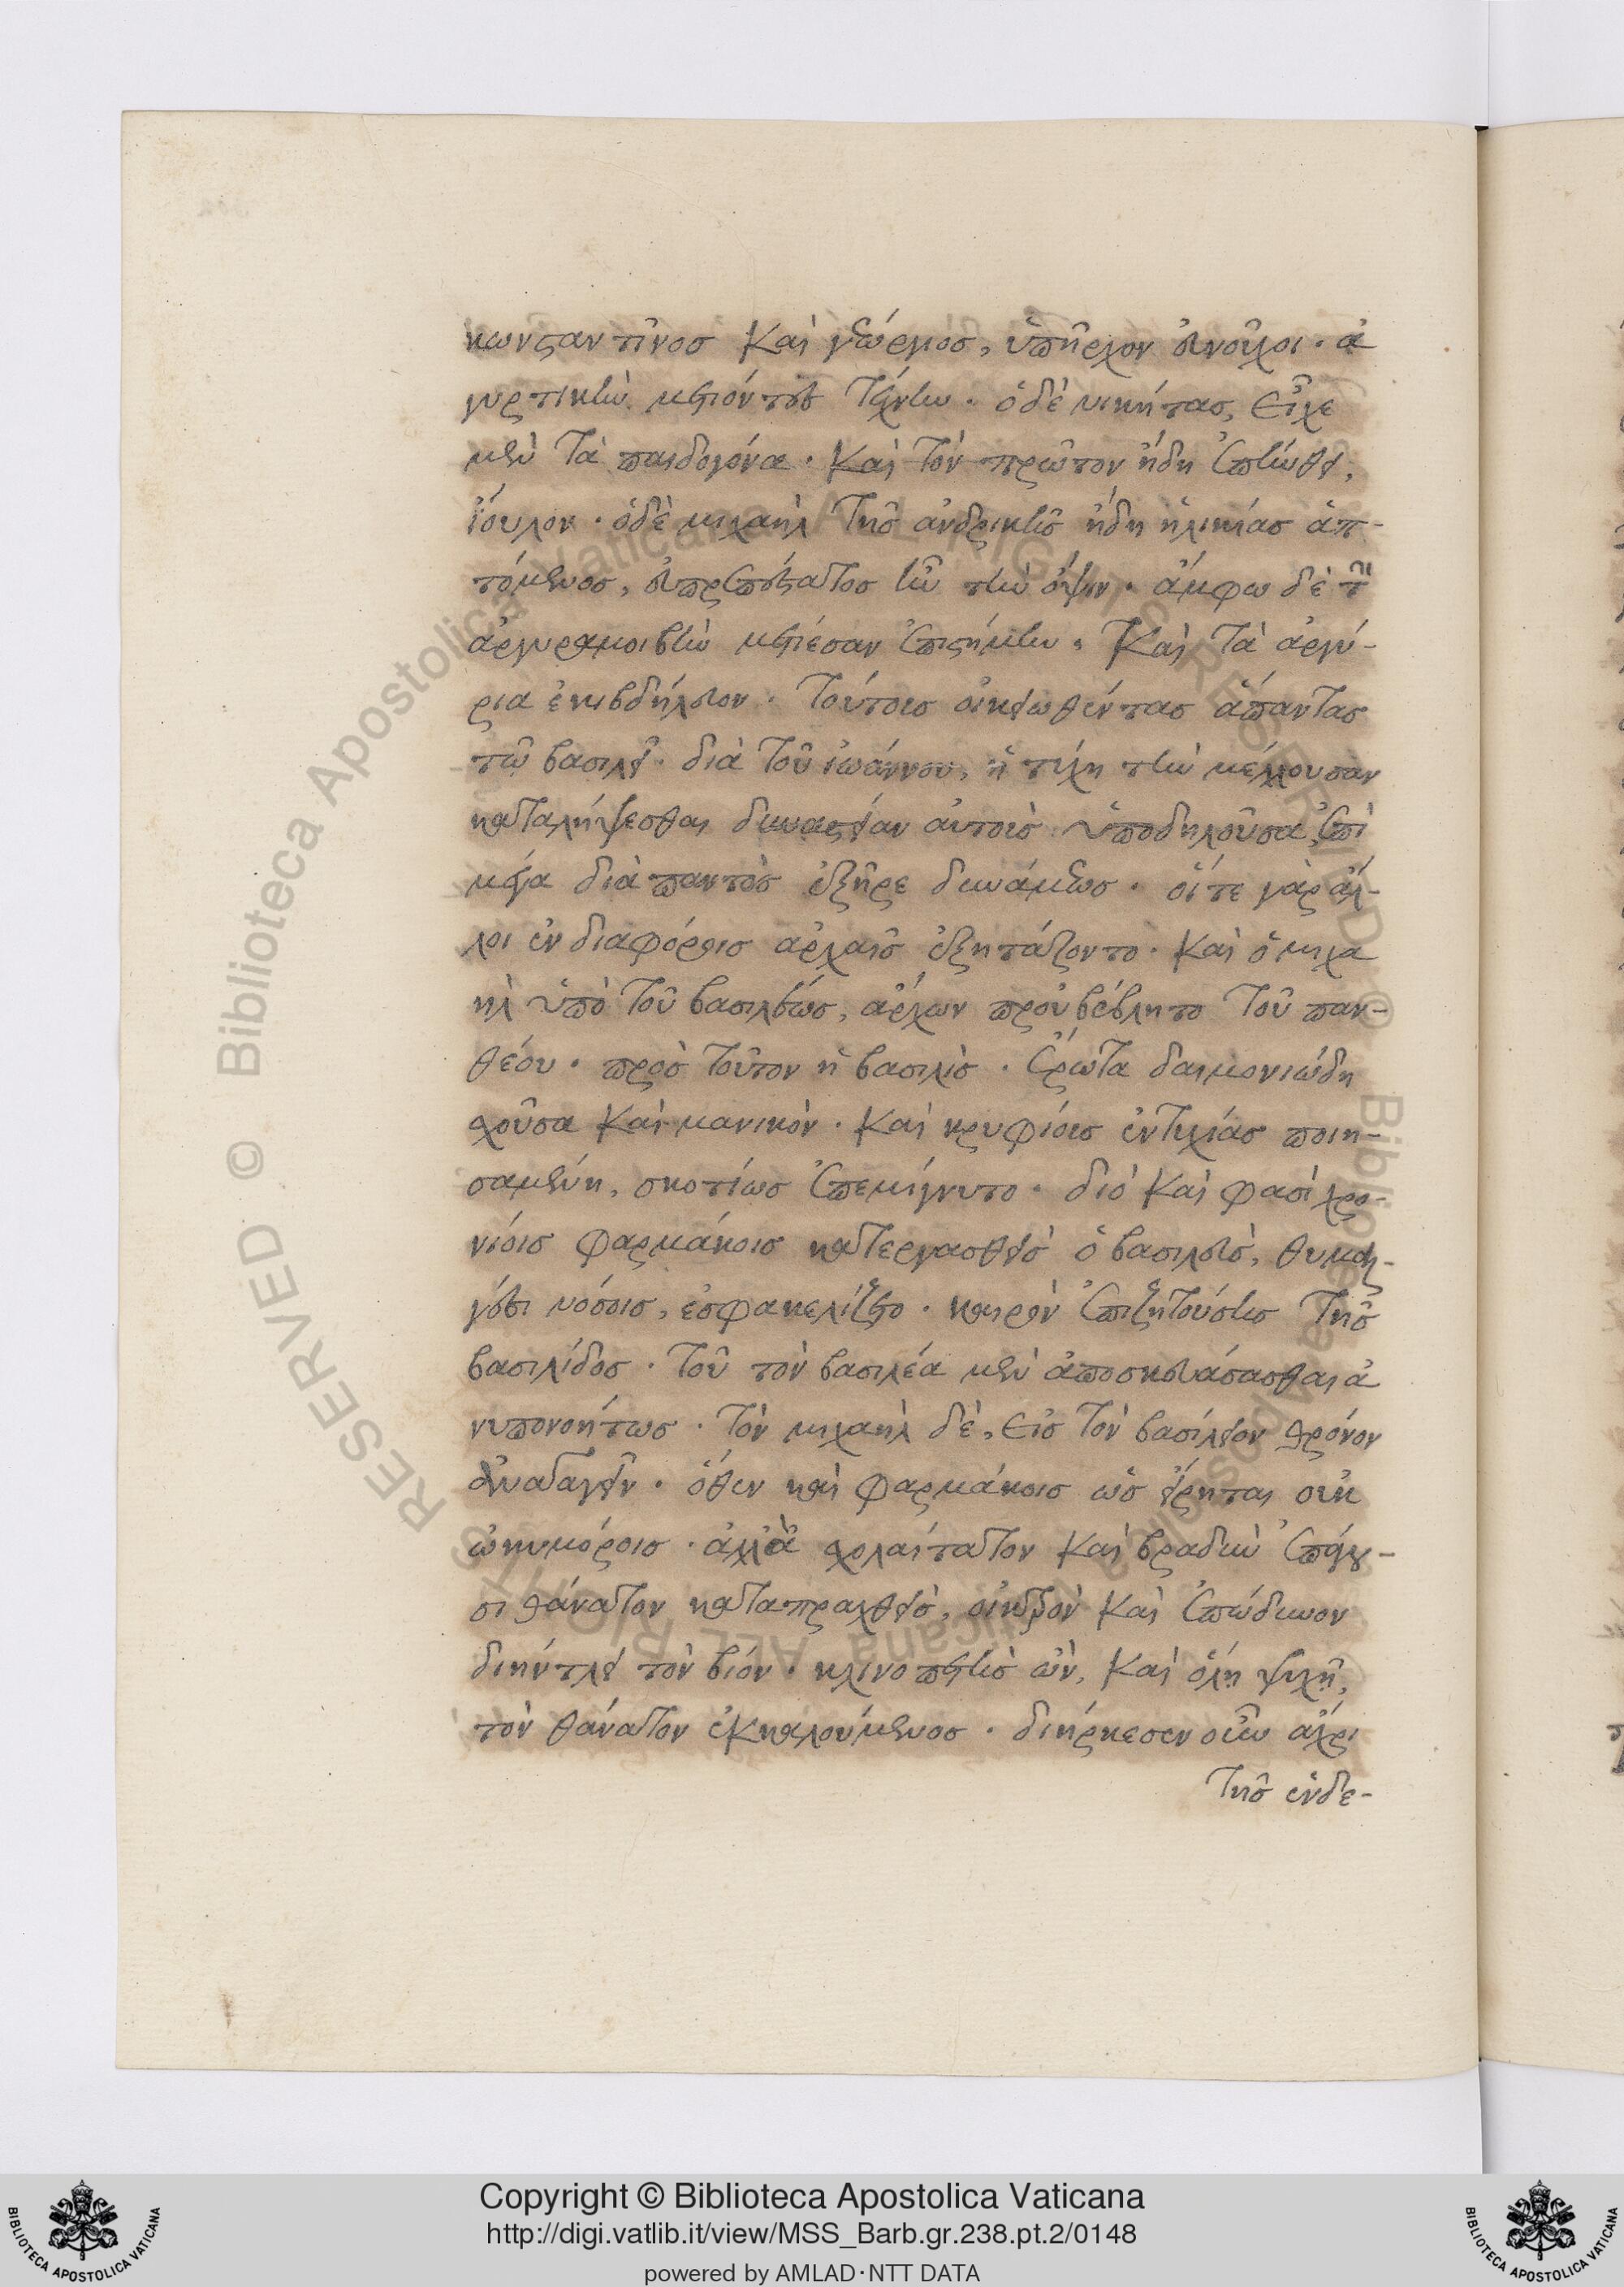 κωνσταντῖνοσ καὶ γεώργιοσ, ὑπῆρχον εὐνοῦχοι · ἀ
γυρτικὴν μετιόντες τέχνην · ὁ δὲ νικήτας, εἶχε
μὲν τὰ παιδογόνα · καὶ τὸν πρῶτον ἤδη ἐπήνθει,
ἴουλον · ὁ δὲ μιχαὴλ τῆς ἀνδρικῆς ἤδη ἡλικίας ἁπ-
τόμενος, εὐπρεπέστατος ἦν τὴν ὄψιν · ἄμφω δὲ τὴν
ἀργυραμοιβὴν μετίεσαν ἐπιστήμην, καὶ τὰ ἀργύ-
ρια ἐκιβδήλευον · τούτοις οἰκειωθέντας ἅπαντας
τῷ βασιλεῖ · διὰ τοῦ ἰωάννου, ἡ τύχη τὴν μέλλουσαν
καταλήψεσθαι δυναστείαν αὐτοὶς ὑποδηλοῦσα, ἐπὶ
μέγα διὰ παντὸς ἐξῆρε δυνάμεως · οἵ τε γὰρ ἄλ-
λοι ἐν διαφόροις ἀρχαῖς ἐξητάζοντο · καὶ ὁ μιχα
ὴλ ὑπὸ τοῦ βασιλέως, ἄρχων προὐβέβλητο τοῦ παν-
θέου · πρὸς τοῦτον ἡ βασιλὶς · ἔρωτα δαιμονιώδη
σχοῦσα καὶ μανικὸν · καὶ κρυφίοις ἐντυχίας ποιη-
σαμένη, σκοτίως ἐπεμίγνυτο · διό καὶ φασὶ χρο-
νίοις φαρμάκοις κατεργασθεὶς ὁ βασιλεὺς, θυμαλ-
γέσι νόσοις, ἐσφακελίζετο · καιρὸν ἐπιζητούσης τῆς
βασιλίδος · τοῦ τὸν βασιλέα μὲν ἀποσκευάσασθαι ἀ
νυπονοήτως · τὸν μιχαὴλ δὲ, εἰς τὸν βασίλειον θρόνον
ἀναγαγεῖν · ὅθεν καὶ φαρμάκοις ὡς εἴρηται οὐκ
ὠκυμόροις · ἀλλὰ σχολαίτατον καὶ βραδὺν ἐπάγου-
σι θάνατον καταπραχθεὶς, οἰκτρὸν καὶ ἐπώδυνον
διήντλει τὸν βίον · κλινοπετὴς ὢν, καὶ ὅλῃ ψυχῇ,
τὸν θάνατον ἐκκαλούμενος · διήρκεσεν οὖν ἄχρι
τῆς ἑνδε-
Copyright © Biblioteca Apostolica Vaticana
http://digi.vatlib.it/view/MSS_Barb.gr.238.pt.2/0148
powered by AMLAD·NTT DATA